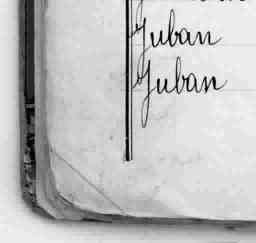 Juban
Juban